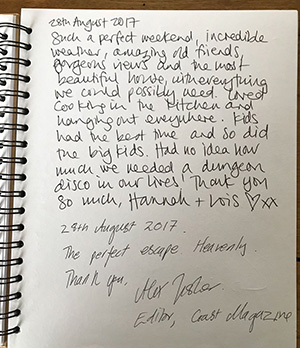 28th August 2017
Such a perfect weekend, incredible
weather, amazing old friends,
gorgeous views and the most
beautiful house, with everything
we could possibly need. Loved
cooking in the kitchen and
hanging out everywhere. Kids
had the best time and so did
the big kids. Had no idea how
much we needed a dungeon
disco in our lives! Thank you
so much, Hannah + Lois ♡xx
29th August 2017.
The perfect escape. Heavenly.
Thank you,
Alex
Editor, Coast Magazine